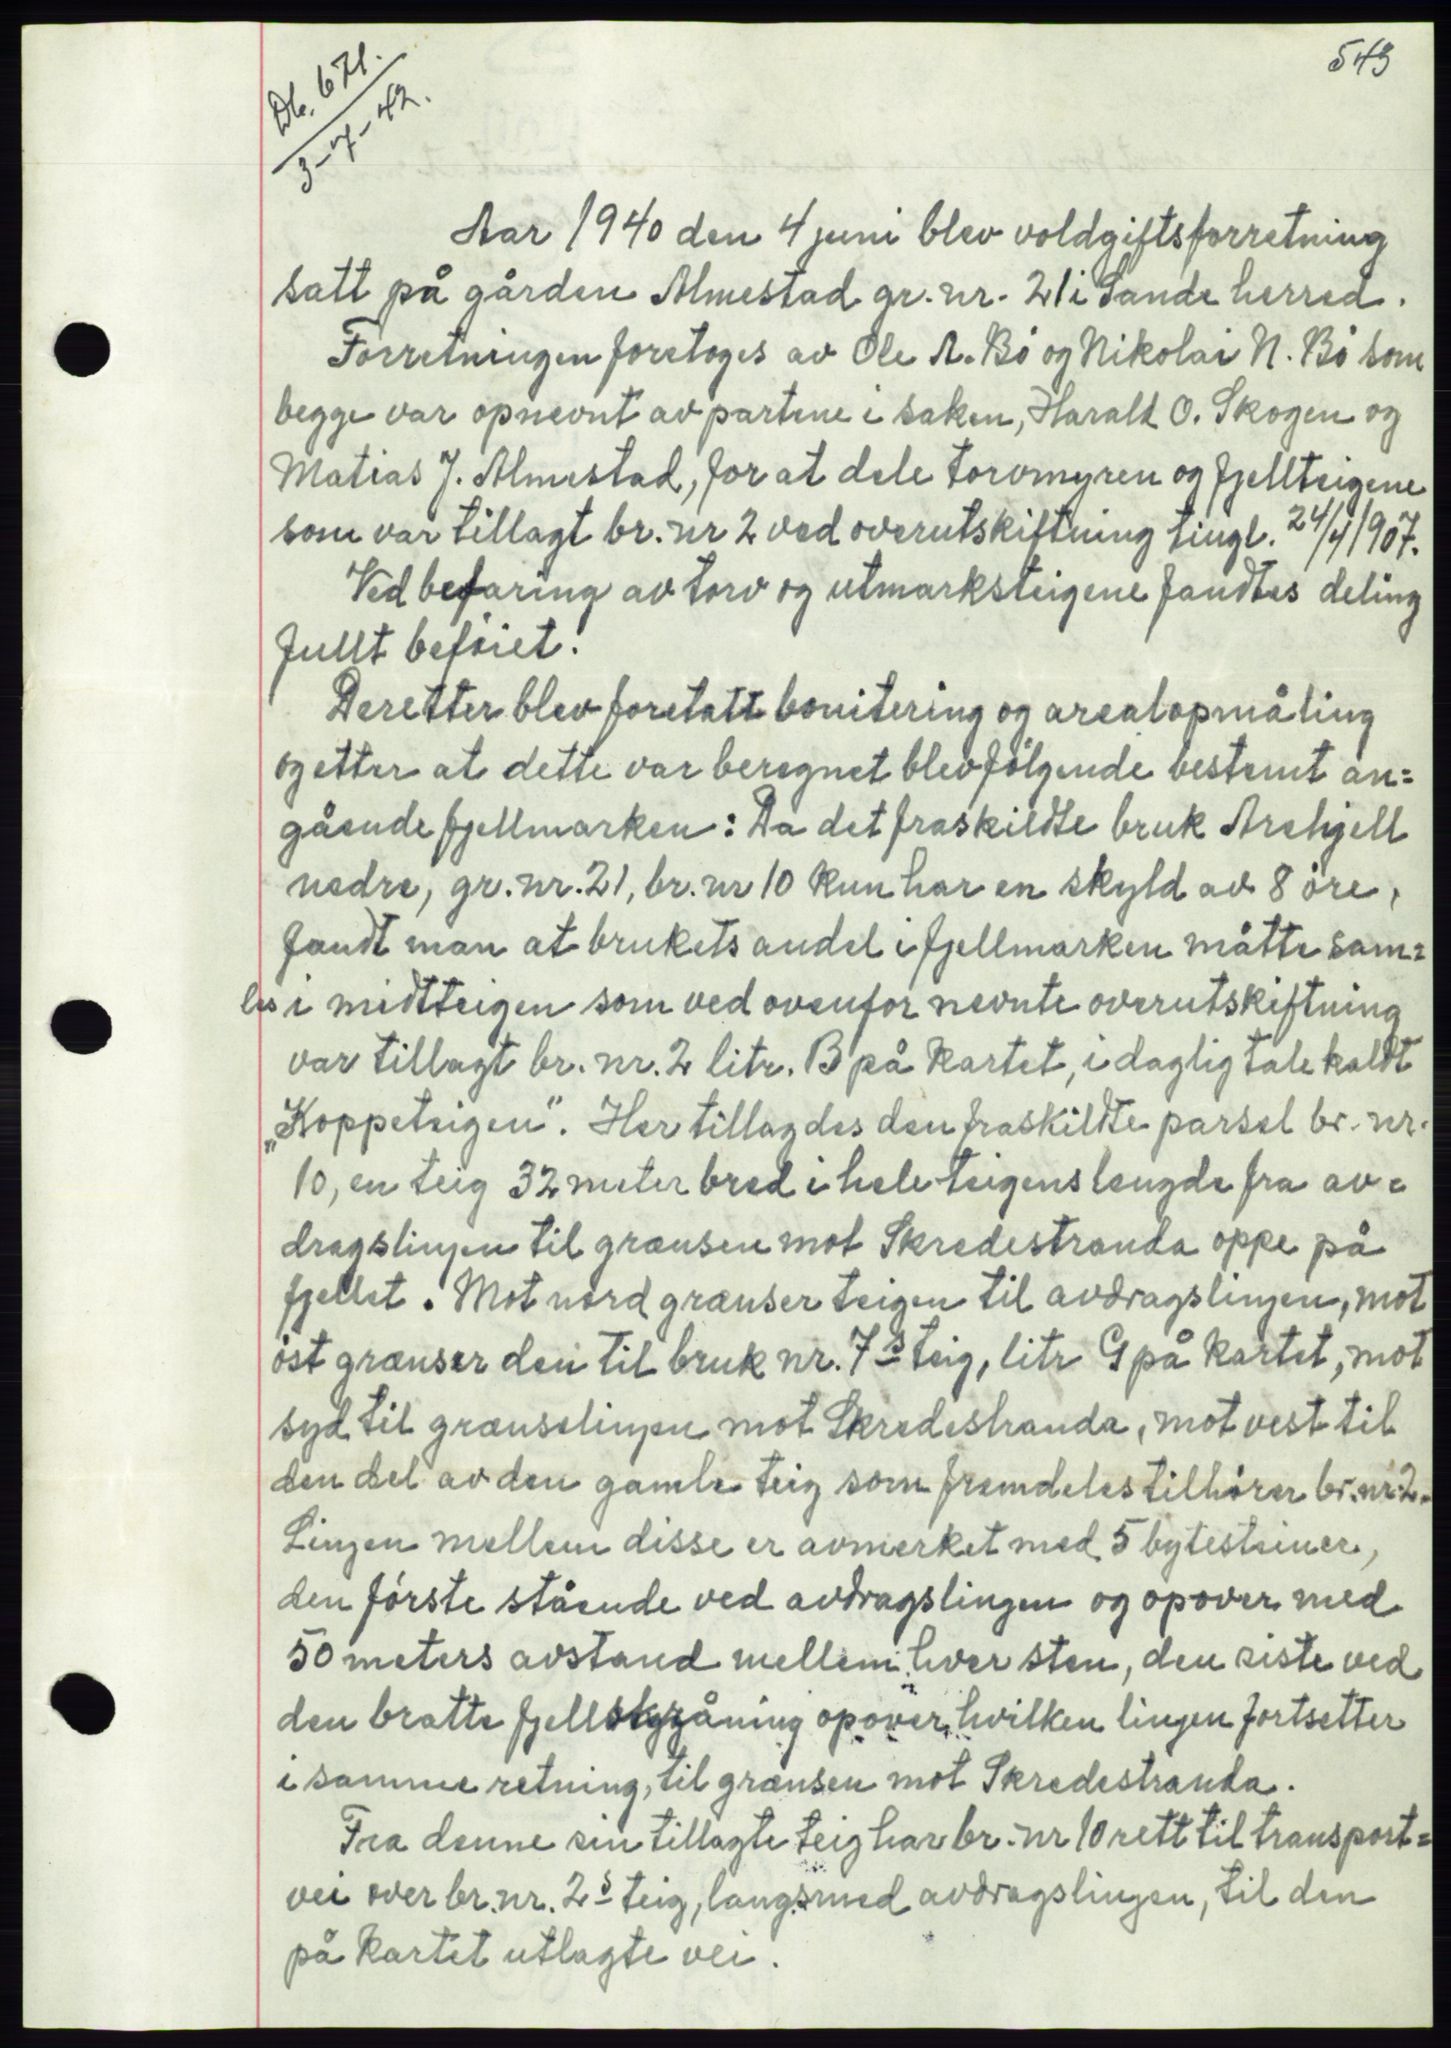 543
Db. 671.
3-7-42.
Aar 1940 den 4 juni blev voldgiftsforretning
satt på gården Almestad gr. nr. 21 i Sande herred.
Forretningen foretoges av Ole A. Bö og Nikolai N. Bö som
begge var opnevnt av partene i saken, Harald O. Skogen og
Matias J. Almestad, for at dele torvmyren og fjellteigene
som var tillagt br. nr 2 ved overutskiftning tingl. 24/4 1907.
Ved befaring av torv og utmarksteigene fandtes deling
fullt beföiet.
Deretter blev foretatt bonitering og arealopmåling
og etter at dette var beregnet blev fölgende bestemt an=
gående fjellmarken: Da det fraskildte bruk Arehjell
nedre, gr. nr. 21, br. nr 10 kun har en skyld av 8 öre,
fandt man at brukets andel i fjellmarken måtte sam=
les i midtteigen som ved ovenfor nevnte overutskiftning
var tillagt br. nr. 2 litr. B på kartet, i daglig tale kaldt
„Koppeteigen". Her tillagdes den fraskildte parsel br. nr.
10, en teig 32 meter bred i hele teigens lengde fra av=
dragslinjen til grænsen mot Skredestranda oppe på
fjellet. Mot nord grænser teigen til avdragslinjen, mot
öst grænser den til bruk nr. 7s teig, litr G på kartet, mot
syd til grænselinjen mot Skredestranda, mot vest til
den del av den gamle teig som fremdeles tilhörer br. nr. 2.
Linjen mellem disse er avmerket med 5 bytesteiner,
den förste stående ved avdragslinjen og opover med
50 meters avstand mellem hver sten, den siste ved
den bratte fjellskråning opover hvilken linjen fortsetter
i samme retning, til grænsen mot Skredestranda.
Fra denne sin tillagte teig har br. nr 10 rett til transport=
vei over br. nr. 2s teig, langsmed avdragslinjen, til den
på kartet utlagte vei.